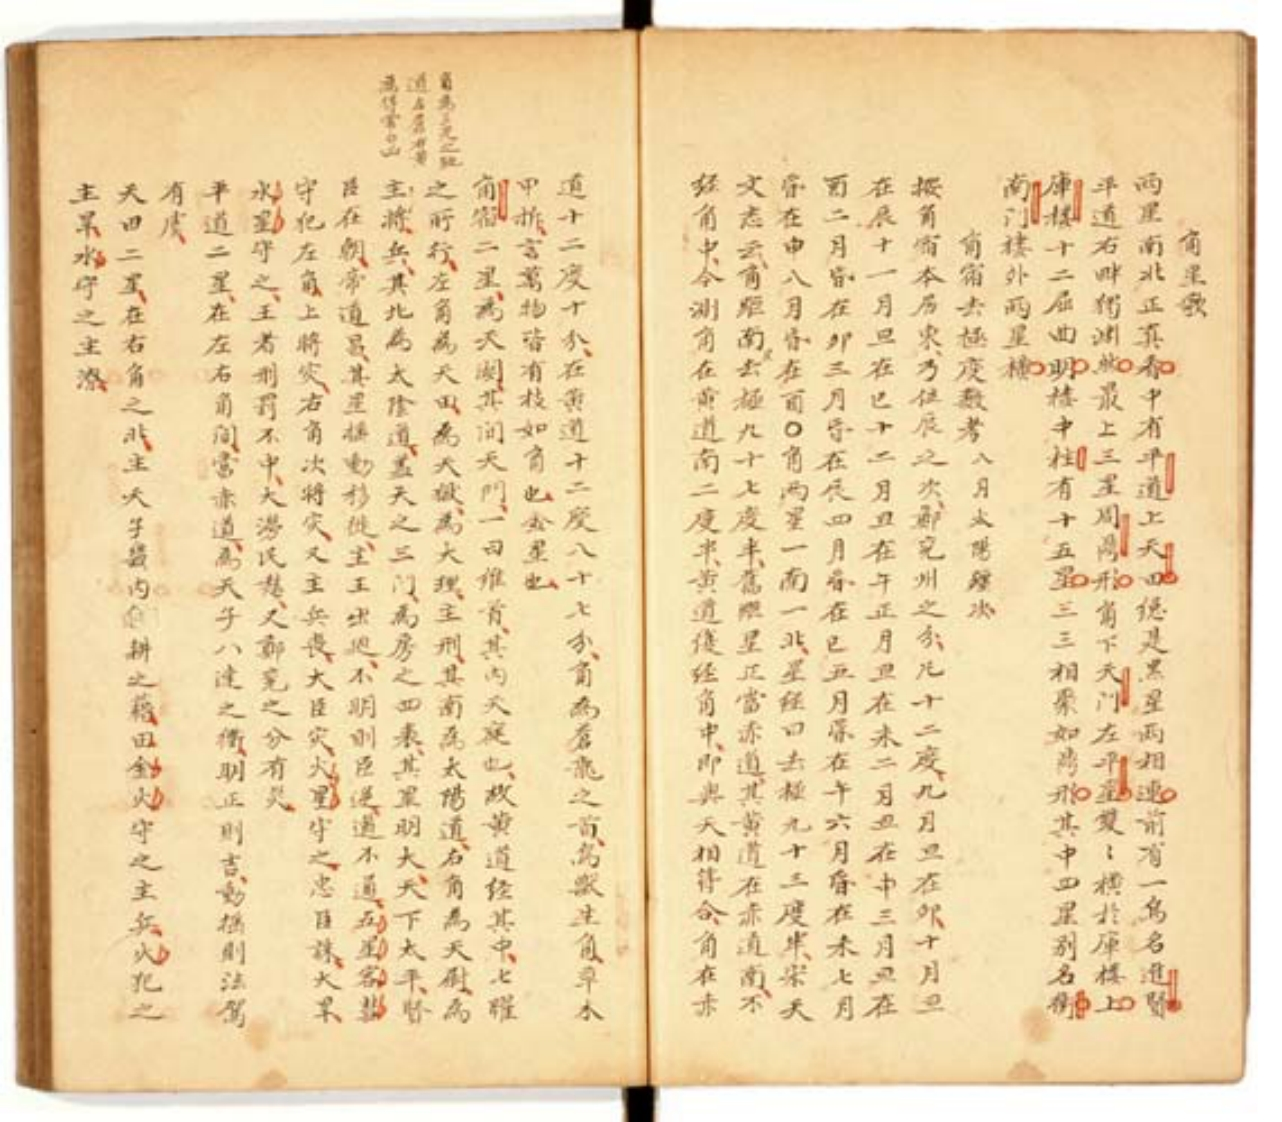 角星歌
両星南北正直着中有平道上天田緫是黒星両相連前有一烏名進賢
平道右畔獨渊然最上三星周鼎形角下天门左平星雙〻横扵庫楼上
庫樓十二屈曲明楼中柱有十五星三三相聚如鼎形其中四星别名衡
南门樓外両星横
角宿去極度數考 八月太陽躔次
按角宿本居東乃位辰之次鄭兖州之分凡十二度九月旦在卯十月旦
在辰十一月旦在巳十二月旦在午正月旦在未二月旦在申三月旦在
酉二月昏在卯三月昏在辰四月昏在巳五月昏在午六月昏在未七月
昏在申八月昏在酉〇角両星一南一北星経曰去極九十三度半宋天
文志云角距南去極九十七度半舊距星正當赤道其黄道在赤道南不
経角中今測角在黄道南二度半黄道復経角中即與天相符合角在赤
道十二度十分在黄道十二度八十七分角為蒼龍之首為獸生角草木
甲拆言萬物皆有枝如角也金星也
角宿二星為天闕其间天門一曰維首其内天庭也故黄道経其中七曜
之所行左角為天田為天獄為大理主刑其南為太陽道右角為天尉為
主將兵其北為太陰道蓋天之三门為房之四表其星明大天下太平賢
臣在朝帝道昌其星揺動移徙主王出廵不明則臣逆道不通五星客彗
守犯左角上將灾右角次將灾又主兵喪大臣灾火星守之忠臣誅大旱
水星守之王者刑罰不中大澇民愁又鄭兖之分有灾
平道二星在左右角间當赤道為天子八達之衢明正則吉動揺則法駕
有虞
天田二星在右角之北主天子畿内耕之藉田金火守之主兵火犯之
主旱水守之主潦
角為三光之
道